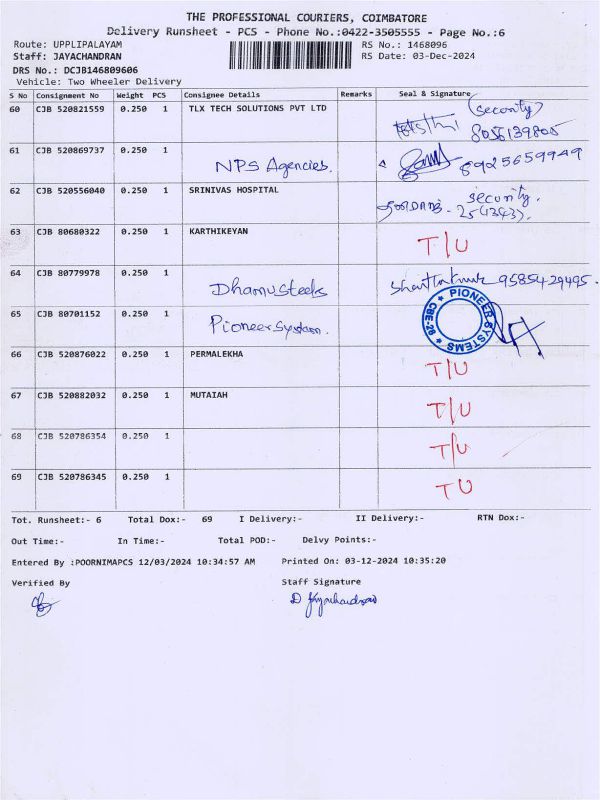 THE PROFESSIONAL COURIERS, COIMBATORE
Delivery Runsheet - PCS - Phone No.:0422-3505555 - Page No.:6
Route: UPPLIPALAYAM RS No.: 1468096
Staff: JAYACHANDRAN RS Date: 03-Dec-2024
DRS No.: DCJB146809606
Vehicle: Two Wheeler Delivery
S No Consignment No Weight PCS Consignee Details Remarks Seal & Signature
60 CJB 520821559 0.250 1 TLX TECH SOLUTIONS PVT LTD (security)
8056139805
61 CJB 520869737 0.250 1 NPS Agencies. 8925659949
62 CJB 520556040 0.250 1 SRINIVAS HOSPITAL security.
63 CJB 80680322 0.250 1 KARTHIKEYAN T/U
64 CJB 80779978 0.250 1 Dhanusteels 9585429495.
65 CJB 80701152 0.250 1 Pioneer System. PIONEER SYSTEMS ★ CBE-28 ★
66 CJB 520876022 0.250 1 PERMALEKHA T/U
67 CJB 520882032 0.250 1 MUTAIAH T/U
68 CJB 520786354 0.250 1 T/U
69 CJB 520786345 0.250 1 TU
Tot. Runsheet:- 6 Total Dox:- 69 I Delivery:- II Delivery:- RTN Dox:-
Out Time:- In Time:- Total POD:- Delvy Points:-
Entered By :POORNIMAPCS 12/03/2024 10:34:57 AM Printed On: 03-12-2024 10:35:20
Verified By Staff Signature